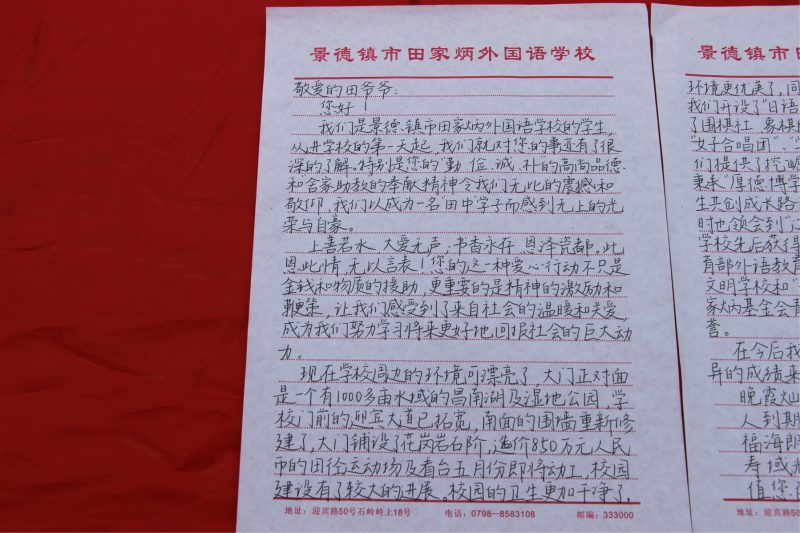 景德镇市田家炳外国语学校
敬爱的田爷爷:
您好!
我们是景德镇市田家炳外国语学校的学生,
从进学校的第一天起,我们就对您的事迹有了很
深的了解。特别是您的"勤、俭、诚、朴的高尚品德
和舍家助教的奉献精神令我们无比的震撼和
敬仰,我们以成为一名"田中"学子而感到无上的光
荣与自豪。
上善若水,大爱无声,书香永存,恩泽瓷都。此
恩此情,无以言表!您的这一种爱心行动不只是
金钱和物质的援助,更重要的是精神的激励和
鞭策,让我们感受到了来自社会的温暖和关爱,
成为我们努力学习将来更好地回报社会的巨大动
力。
现在学校周边的环境可漂亮了,大门正对面
是一个有1000多亩水域的昌南湖及湿地公园,学
校门前的迎宾大道已拓宽,南面的围墙重新修
建了,大门铺设了花岗岩石阶,造价850万元人民
币的田径运动场及看台五月份即将动工,校园
建设有了较大的进展。校园的卫生更加干净了,
地址:迎宾路50号石岭岭上18号 电话:0798—8583108 邮编:333000
景德镇市田
环境更优美了,同
我们开设了"日语
了围棋社、象棋
"女子合唱团"、
们提供了挖
秉承"厚德博学
生共创成长路
时也领会到"
学校先后获得
育部外语教育
文明学校和"
家炳基金会青
誉。
在今后我
异的成绩来
晚霞灿
人到期
福海朗
寿域
值您
地址:迎宾路50